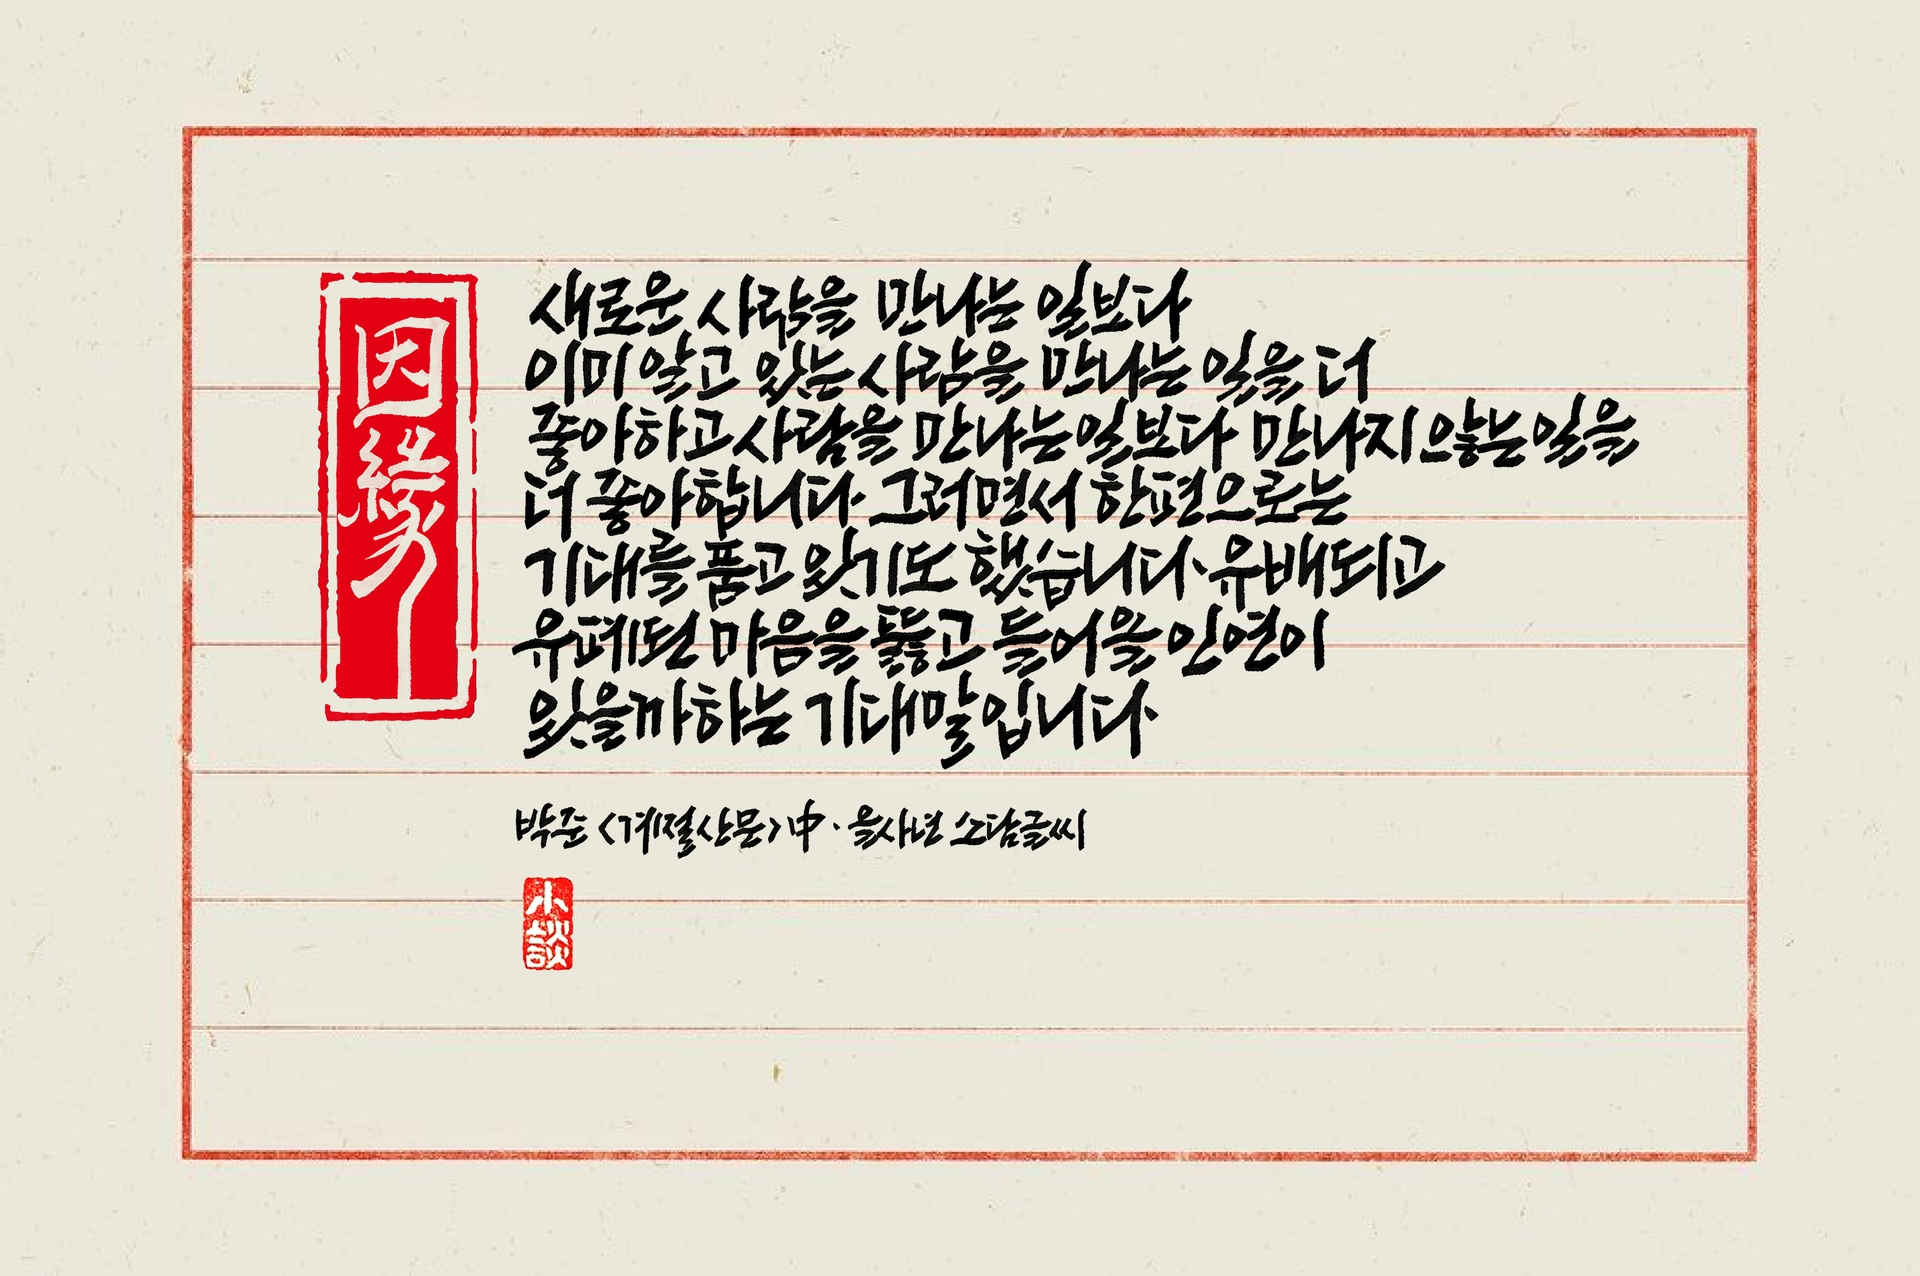 因緣
새로운 사람을 만나는 일보다
이미 알고 있는 사람을 만나는 일을 더
좋아하고 사람을 만나는 일보다 만나지 않는 일을
더 좋아합니다. 그러면서 한편으로는
기대를 품고 있기도 했습니다. 유배되고
유폐된 마음을 뚫고 들어올 인연이
있을까 하는 기대말입니다.
박준 <계절산문> 中 · 을사년 소담글씨
小談